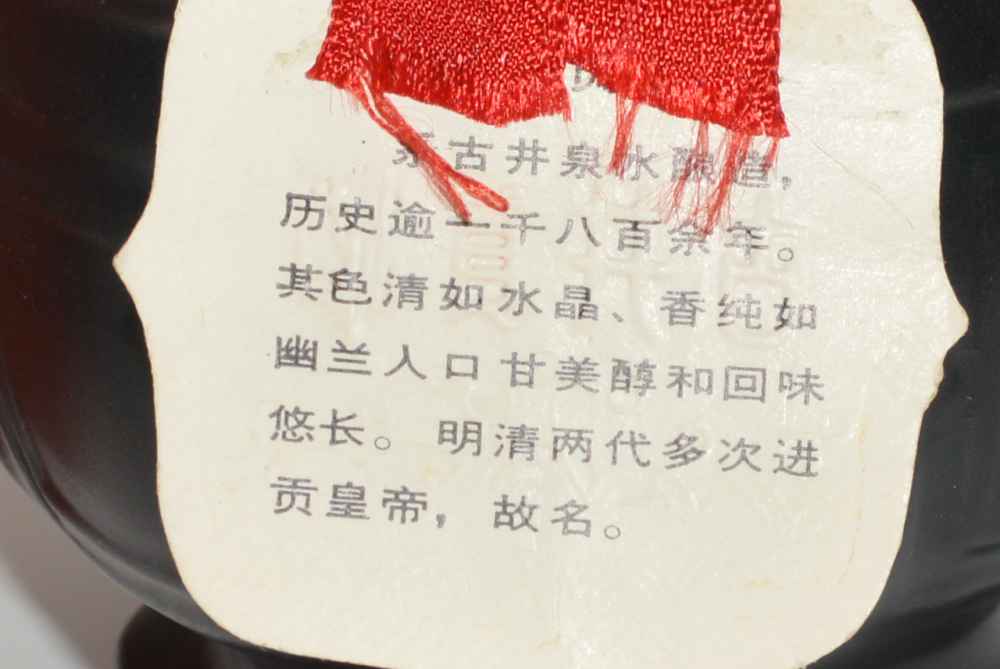 古井泉水酿造，
历史逾一千八百余年。
其色清如水晶、香纯如
幽兰人口甘美醇和回味
悠长。明清两代多次进
贡皇帝，故名。